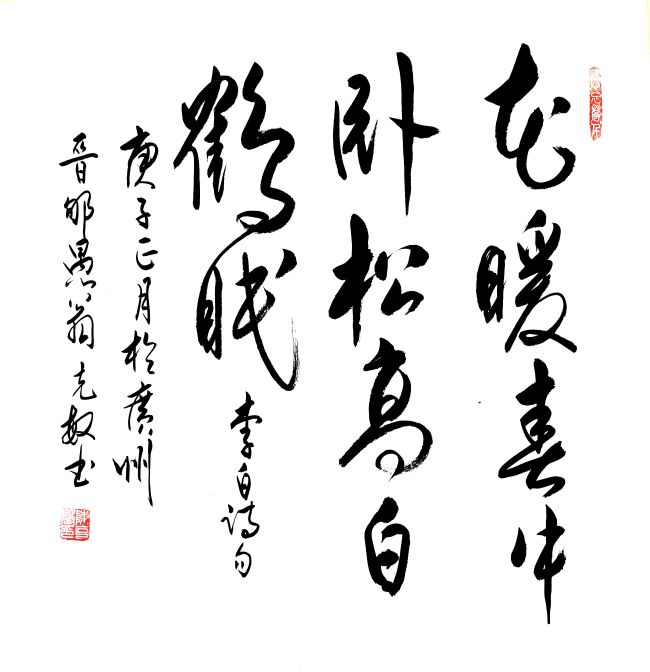 花暖青牛
卧松高白
鶴眠
李白诗句
庚子正月於廣州
晋愚翁克敏书